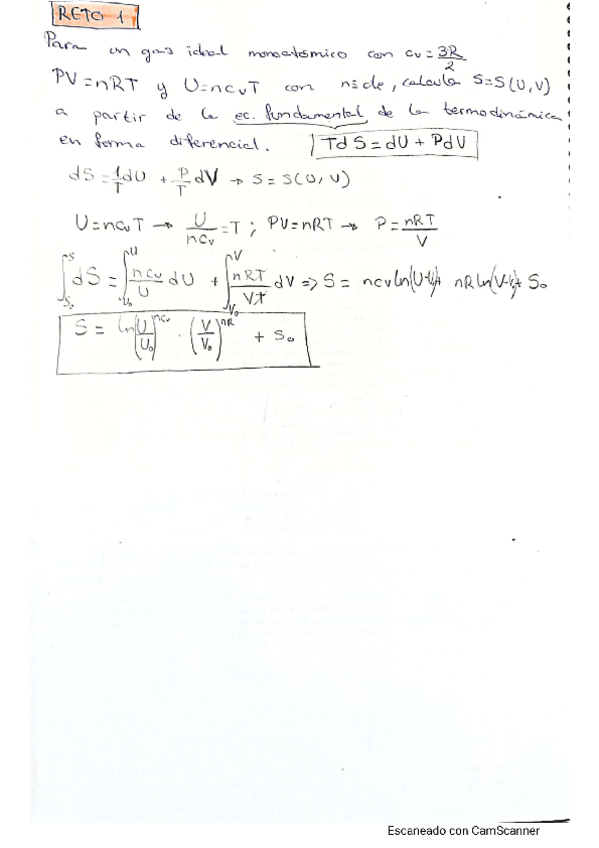 RETO 1
Para un gas ideal monoatómico con cv = 3R/2
PV = nRT y U = ncvT con n≡cte, calcula S=S(U,V)
a partir de la ec. fundamental de la termodinámica
en forma diferencial. TdS = dU + PdV
dS = 1/T dU + P/T dV → S = S(U,V)
U = ncvT → U/ncv = T ; PV = nRT → P = nRT/V
∫_{S₀}^{S} dS = ∫_{U₀}^{U} ncv/U dU + ∫_{V₀}^{V} nRT/VT dV => S = ncv ln(U-U₀)+ nR ln(V-V₀)+ S₀
S = ln(U/U₀)^{ncv} · (V/V₀)^{nR} + S₀
Escaneado con CamScanner